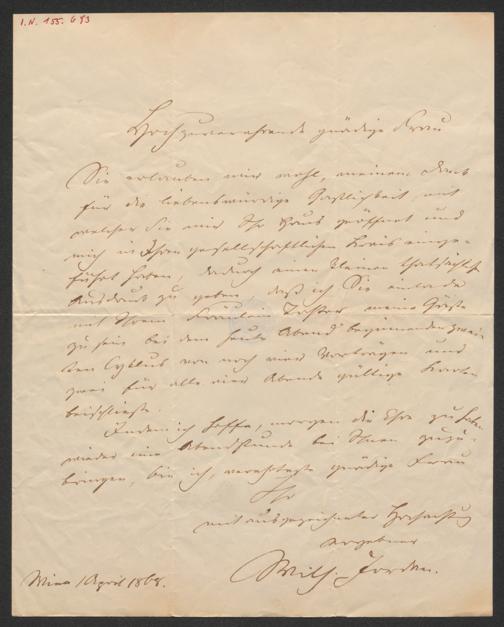 I.N. 155.693
Hochzuverehrende gnädige Frau
Sie erlauben mir wohl, meinen Dank
für die liebenswürdige Gastlichkeit, mit
welcher Sie mir Ihr Haus geöffnet und
mich in Ihren gesellschaftlichen Kreis einge-
führt haben, dadurch einen kleinen thatsächl.
Ausdruck zu geben daß ich Sie einlade
mit Ihrem Fräulein Tochter meine Gäste
zu sein bei dem heute Abend beginnenden zwei-
ten Cyklus von noch vier Vorträgen und
zwei für alle vier Abende gültige Karten
beischließe.
Indem ich hoffe, morgen die Ehre zu haben
wieder eine Abendstunde bei Ihnen zuzu-
bringen, bin ich, verehrteste gnädige Frau
Ihr
mit ausgezeichneter Hochachtung
ergebner
Wilh. Jordan.
Wien 1 April 1868.